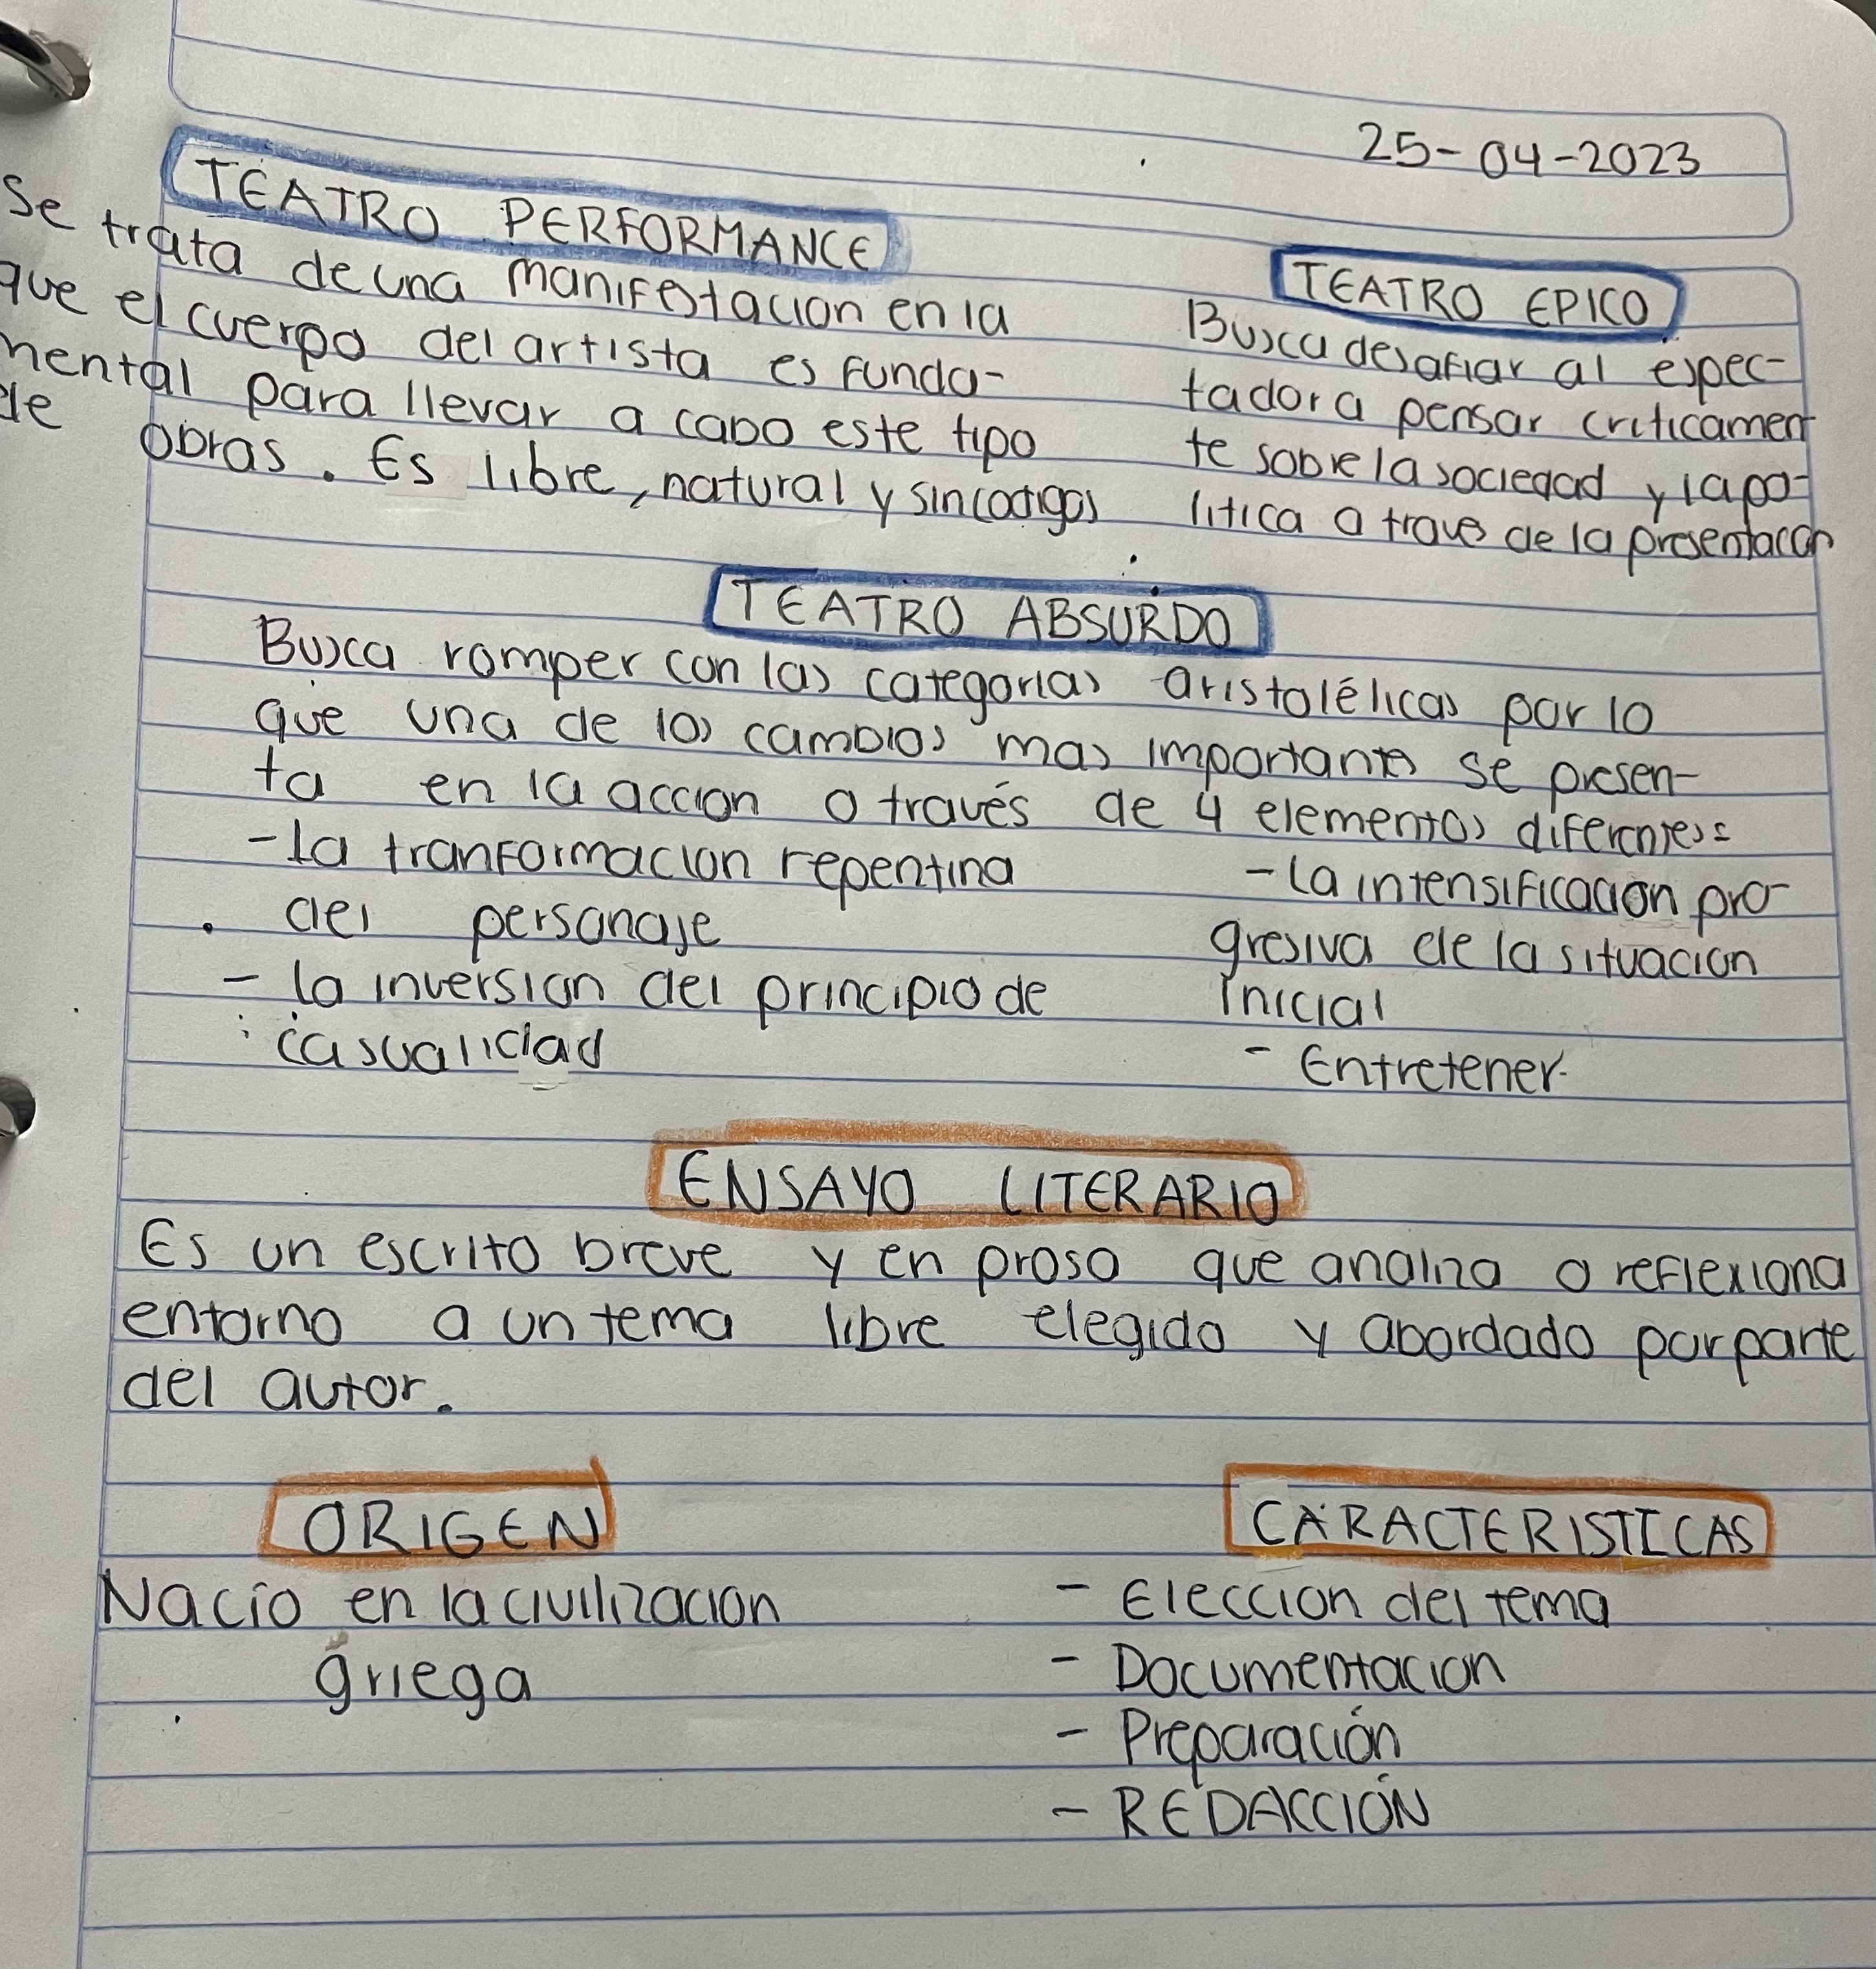 25-04-2023
TEATRO PERFORMANCE
Se trata de una manifestacion en la
que el cuerpo del artista es funda-
mental para llevar a cabo este tipo
de obras. Es libre, natural y sin codigos
TEATRO EPICO
Busca desafiar al espec-
tador a pensar criticamen
te sobre la sociedad y la po-
litica a traves de la presentacion
TEATRO ABSURDO
Busca romper con las categorias aristolélicas por lo
que una de los cambios mas importantes se presen-
ta en la accion a través de 4 elementos diferentes:
- La tranformacion repentina
del personaje
- la inversion del principio de
casualidad
- La intensificacion pro-
gresiva de la situacion
inicial
- Entretener.
ENSAYO LITERARIO
Es un escrito breve y en prosa que analiza o reflexiona
entorno a un tema libre elegido y abordado por parte
del autor.
ORIGEN
Nacio en la civilizacion
griega
CARACTERISTICAS
- Eleccion del tema
- Documentacion
- Preparación
- REDACCIÓN